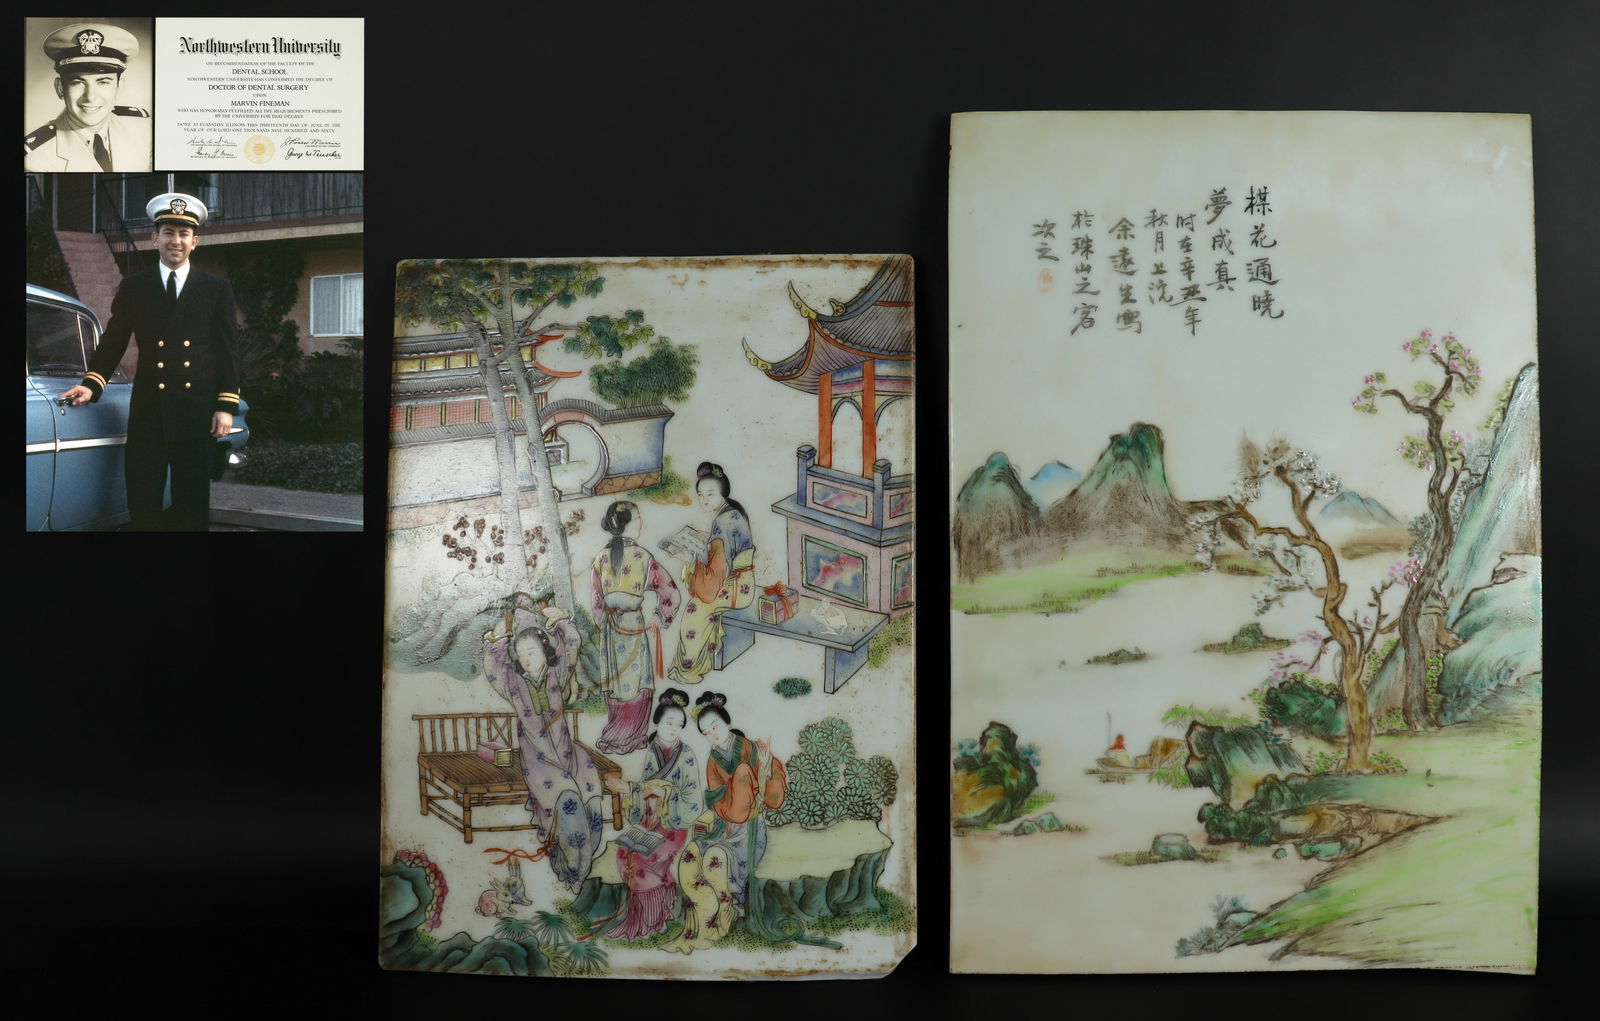 Northwestern University
ON RECOMMENDATION OF THE FACULTY OF THE
DENTAL SCHOOL
NORTHWESTERN UNIVERSITY HAS CONFERRED THE DEGREE OF
DOCTOR OF DENTAL SURGERY
UPON
MARVIN FINEMAN
WHO HAS HONORABLY FULFILLED ALL THE REQUIREMENTS PRESCRIBED
BY THE UNIVERSITY FOR THAT DEGREE
DONE AT EVANSTON ILLINOIS THIS THIRTEENTH DAY OF JUNE IN THE
YEAR OF OUR LORD ONE THOUSAND NINE HUNDRED AND SIXTY
楳花通曉
夢成真
时在辛丑年
秋月上浣
余遠生寫
於珠山之窓
次之